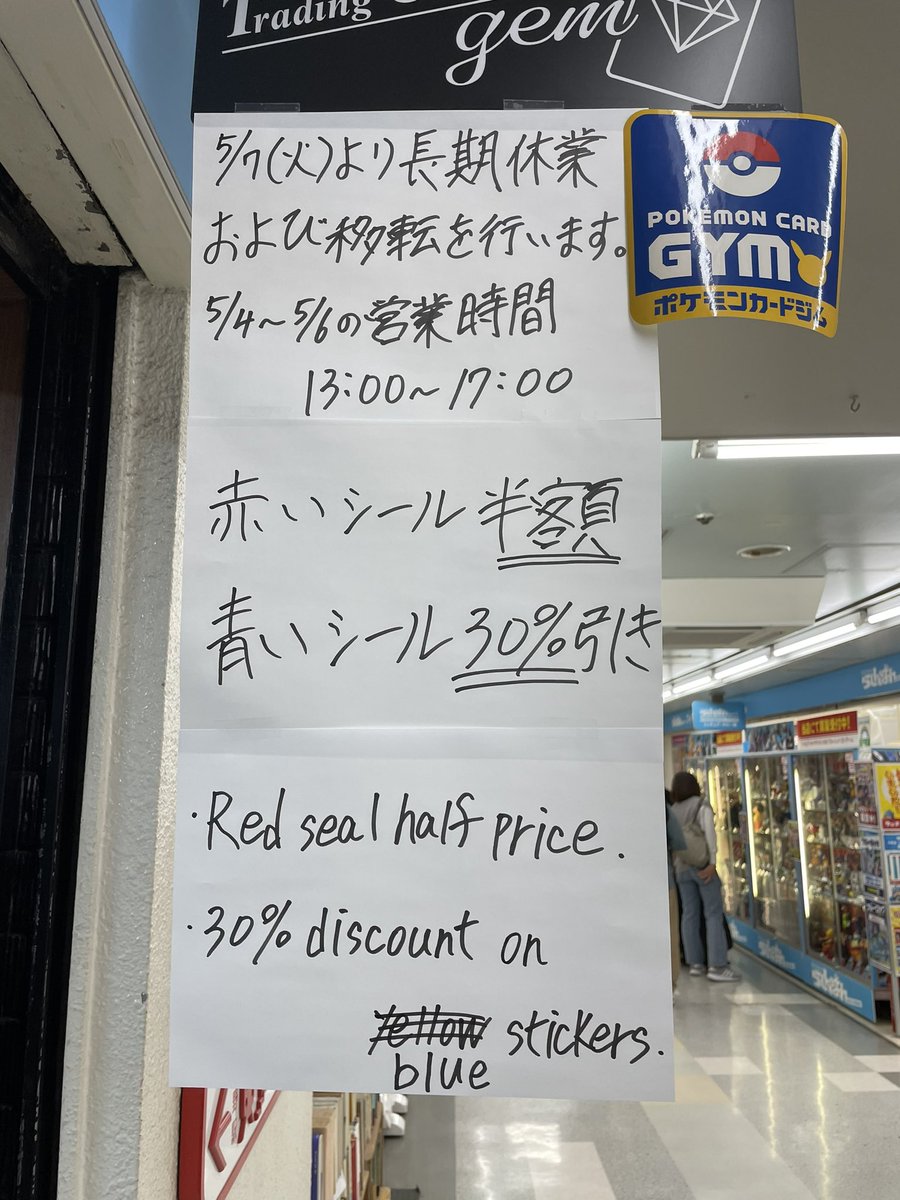 Trading
gem
5/7(火)より長期休業
および移転を行います。
5/4~5/6の営業時間
13:00~17:00
POKÉMON CARD
GYM
ポケモンカードジム
赤いシール半額
青いシール30%引き
・Red seal half price.
・30% discount on
yellow stickers.
blue